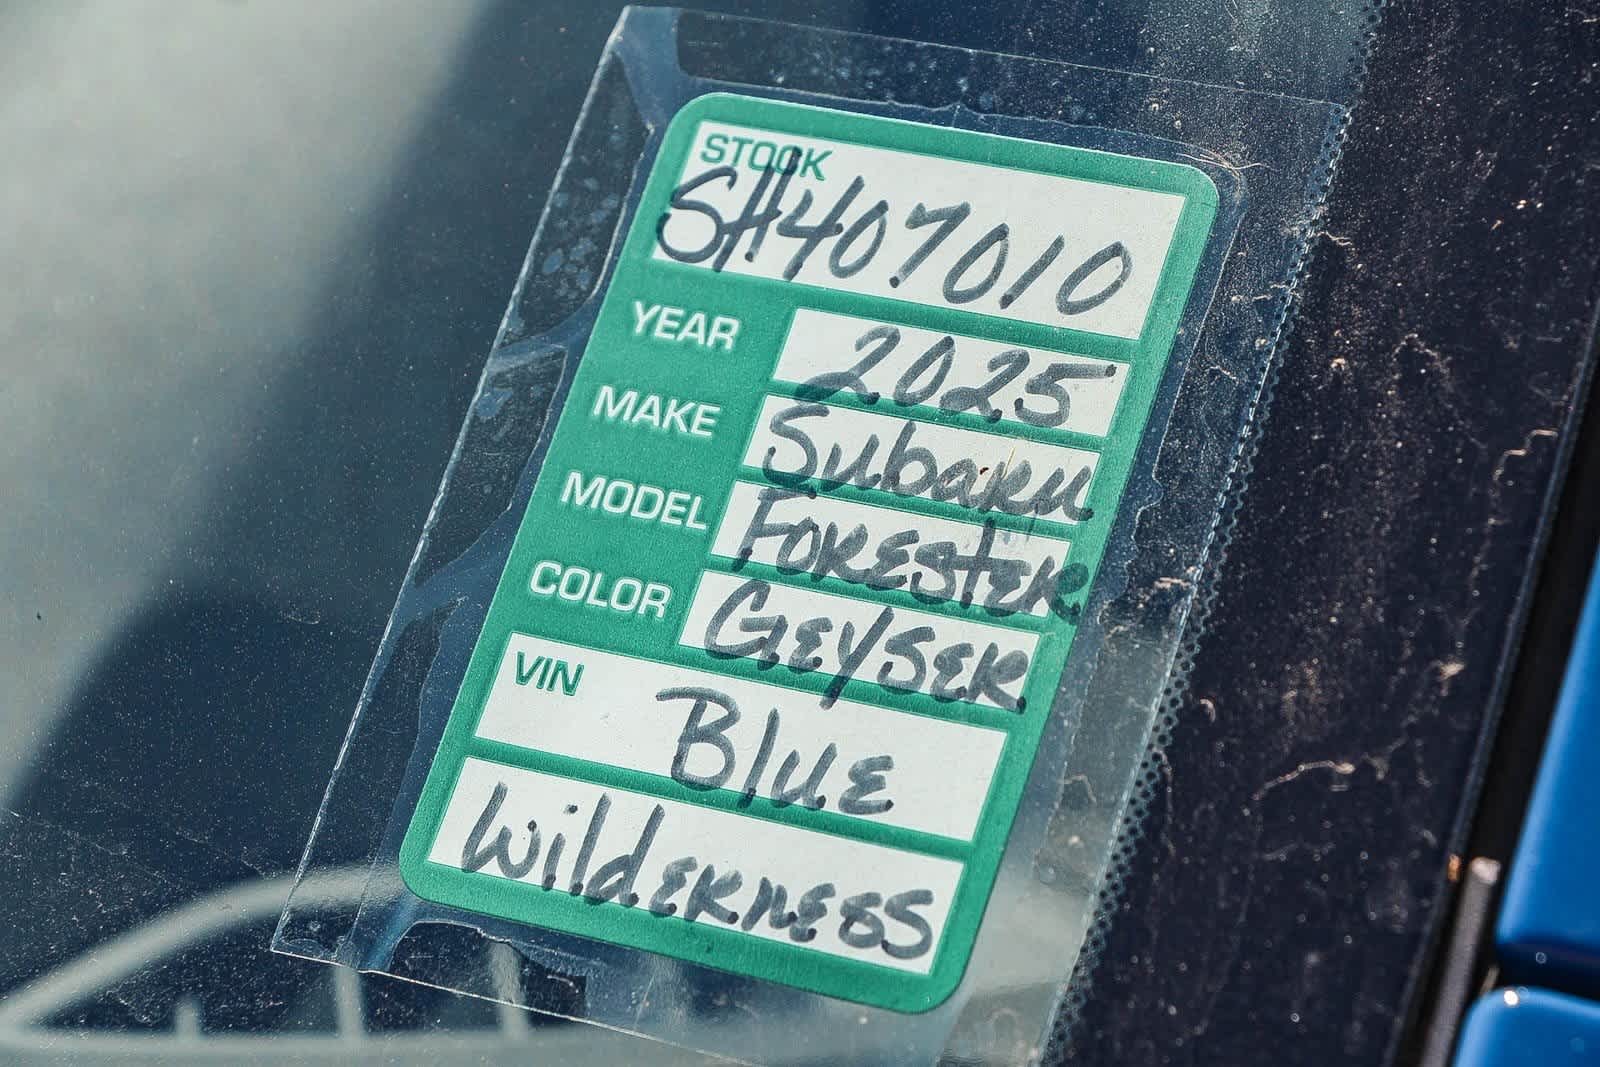 STOCK
SH407010
YEAR 2025
MAKE Subaru
MODEL FORESTER
COLOR GEYSER
VIN Blue
WildERNESS